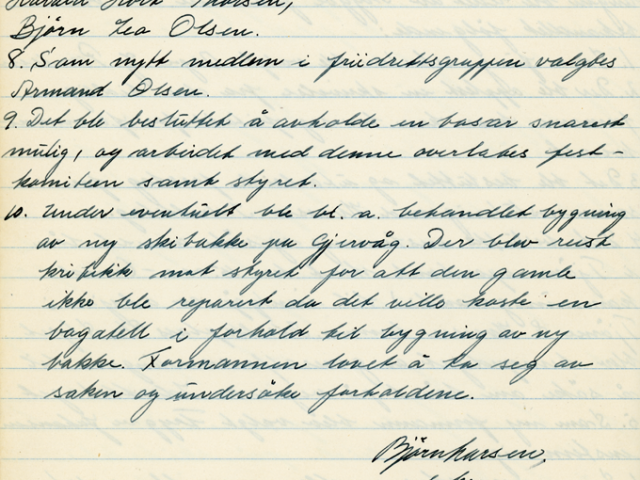 Bjørn Leo Olsen.
8. Som nytt medlem i friidrettsgruppen valgtes
Armand Olsen.
9. Det ble besluttet å avholde en basar snarest
mulig, og arbeidet med denne overlates fest-
komiteen samt styret.
10. Under eventuelt ble bl. a. behandlet bygning
av ny skibakke på Gjervåg. Der blev reist
kritikk mot styret for att den gamle
ikke ble reparert da det ville koste en
bagatell i forhold til bygning av ny
bakke. Formannen lovet å ta seg av
saken og undersøke forholdene.